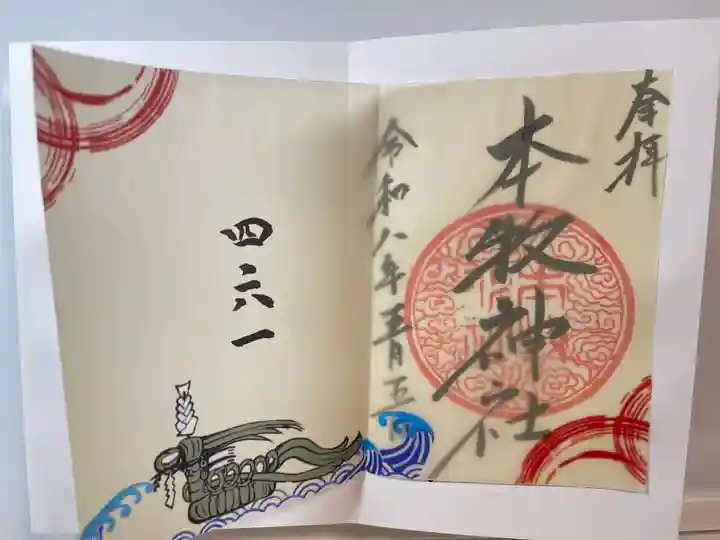 奉拝
本牧神社
令和八年五月五日
四六一